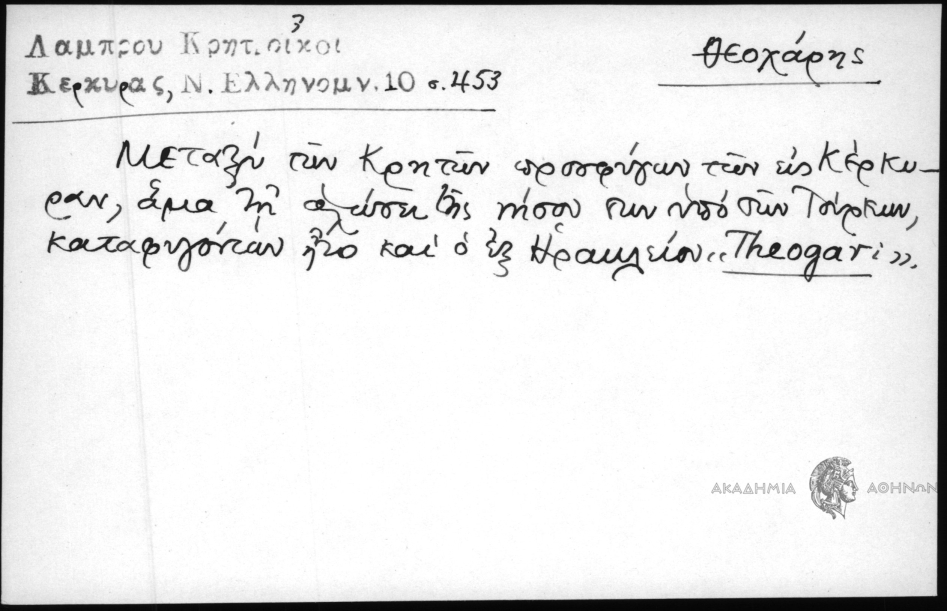 Λαμπρου Κρητ. οίκοι
Κερκυρας, Ν. Ελληνομν. 10 σ. 453
Θεοχάρης
Μεταξύ τῶν Κρητῶν προσφύγων τῶν εἰς Κέρκυ-
ραν, ἅμα τῇ ἁλώσει τῆς νήσου των ὑπό τῶν Τούρκων,
καταφυγόντων ἦτο καί ὁ ἐξ Ἡρακλείου «Theogari».
ΑΚΑΔΗΜΙΑ ΑΘΗΝΩΝ